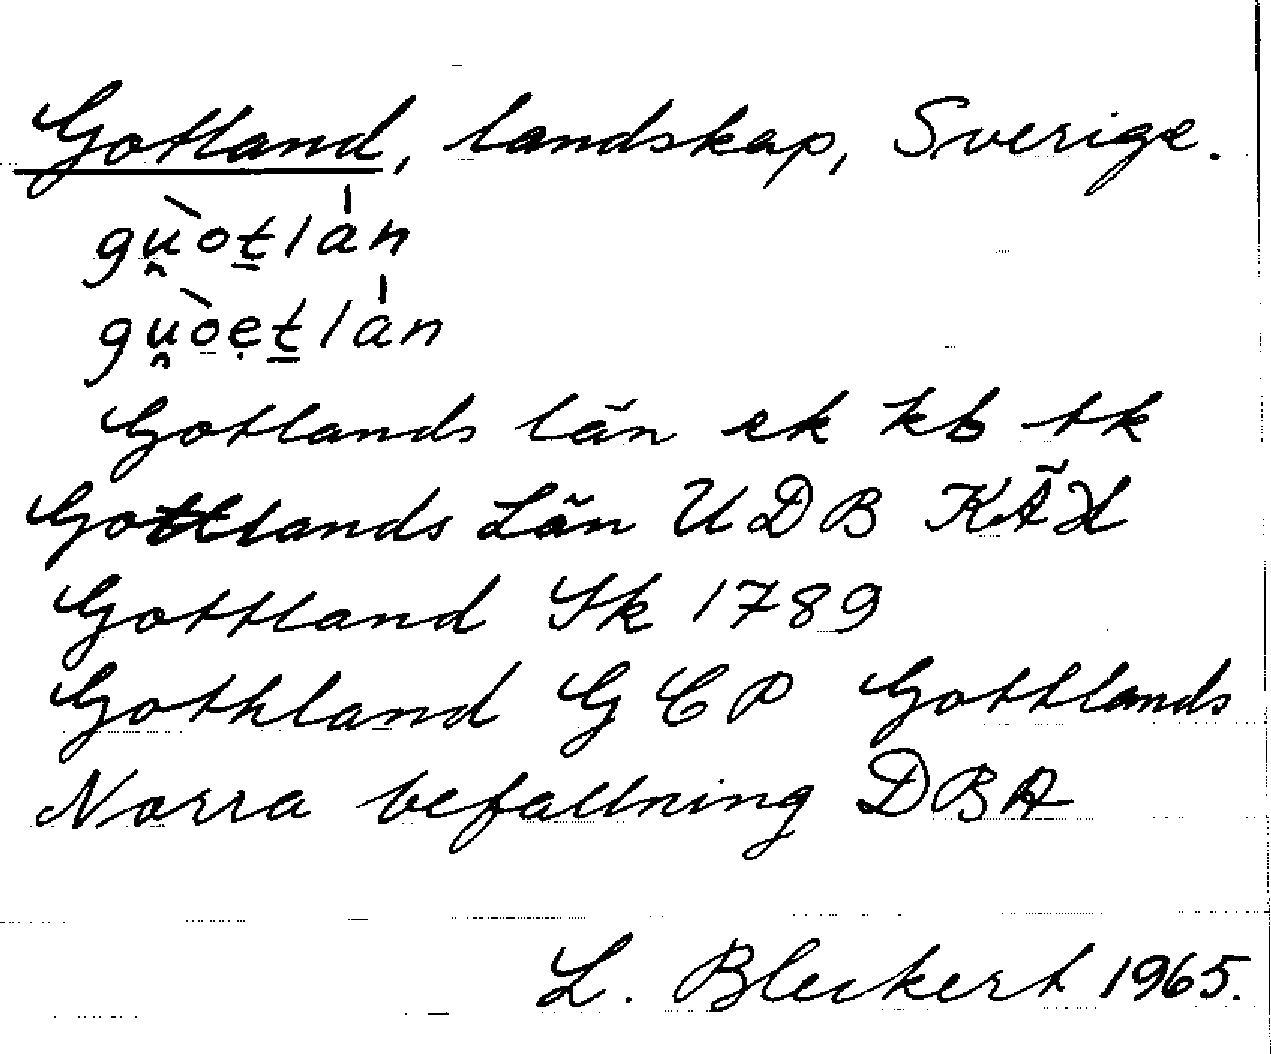 Gotland, landskap, Sverige.
gu̯òt̲lán
gu̯òẹt̲lán
Gotlands län ek kb tk
Gottlands Län UDB KÄX
Gottland Sk 1789
Gothland GCP Gottlands
Norra befallning DBA
L. Bleckert 1965.